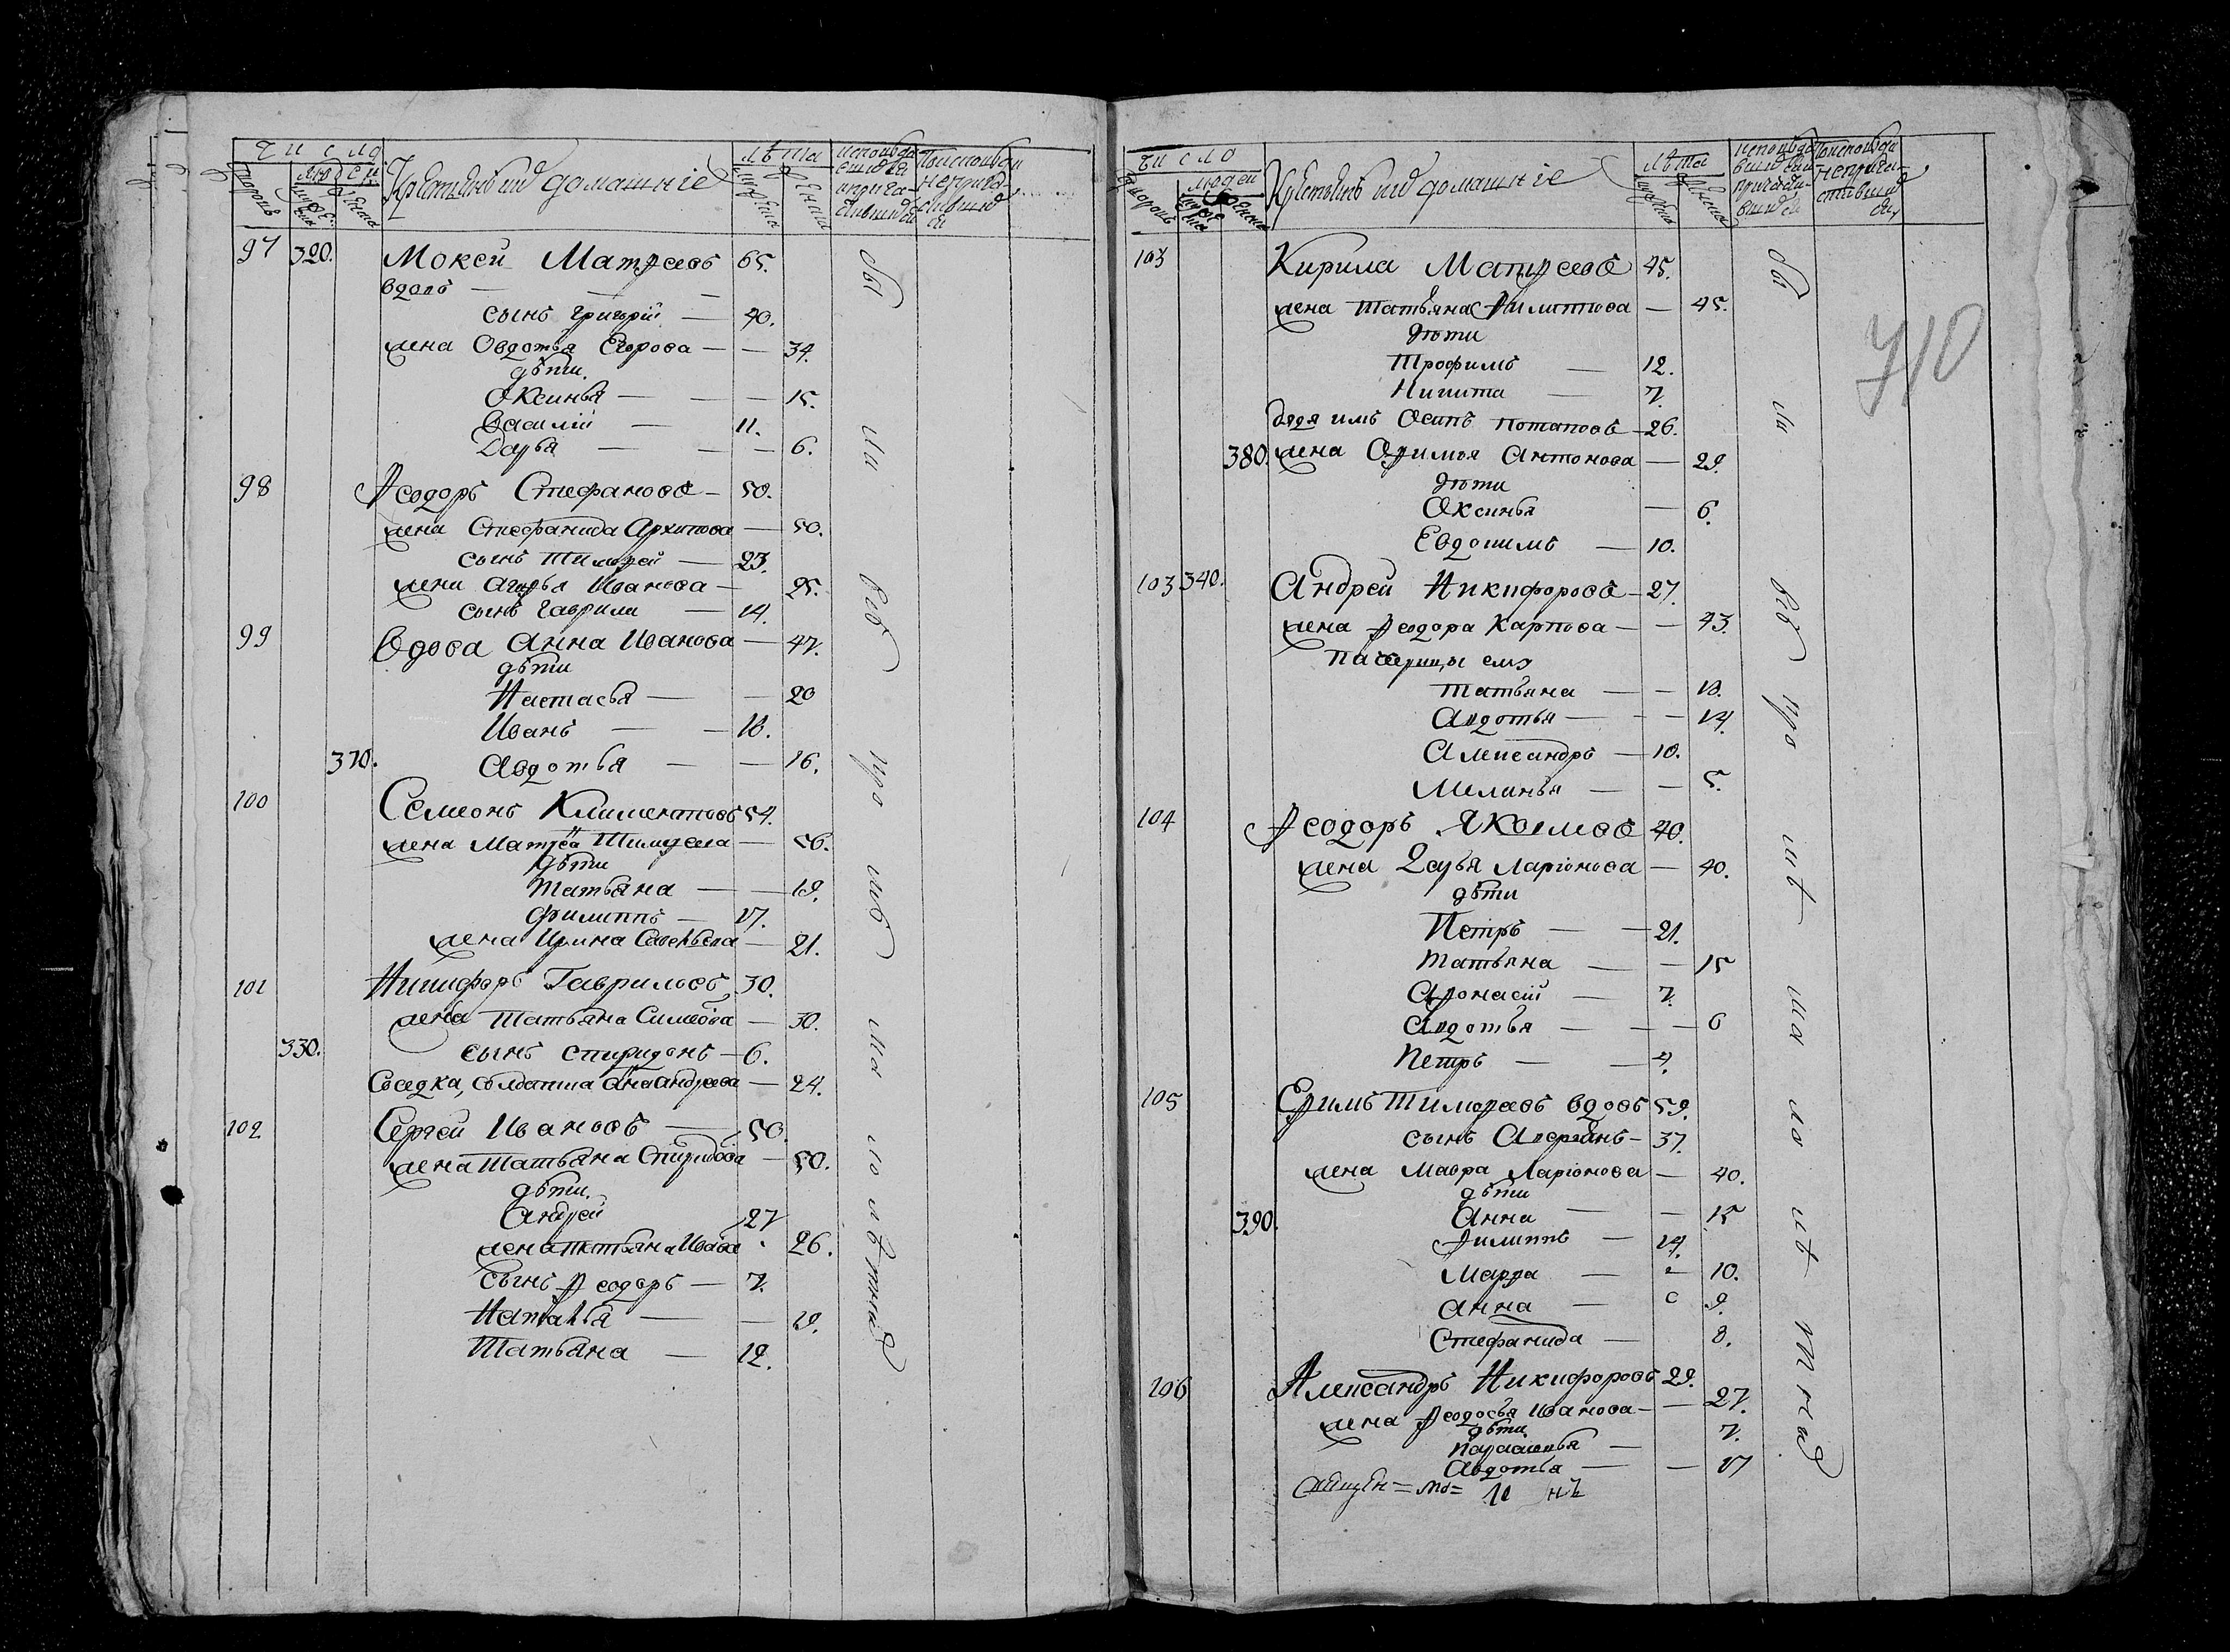 число
людей
Крестьянъ ихъ домашніе
лѣта
97 320. Мокей Матѳеевъ 65.
вдовъ — — —
сынъ григорїй — 40.
жена Овдотья Егорова — — 34.
дѣти
Оксинья — — — 15.
Василїй — 11.
Дарья — — — 6.
98 Ѳеодоръ Стефановъ — 50.
жена Стефанида Архипова — 50.
сынъ Тимоѳей — 23.
жена Агафья Иванова — 25.
сынъ гаврила — 14.
99 Вдова Анна Иванова — 47.
дѣти
Настасья — — 20
Иванъ — — 18.
370. Авдотья — — 16.
100 Семионъ Климентовъ 54.
жена Матрена Тимоѳеева — 56.
дѣти
Татьяна — — 19.
филиппъ — 17.
жена Ирина Савельева — 21.
101 Никифоръ Гавриловъ 30.
жена Татьяна Симеова — 30.
330. сынъ спиридонъ — 6.
Соседка, солдатша Анна Андреева — 24.
102 Сергей Ивановъ — 50.
жена Татьяна Спиридова — 50.
дѣти
Андрей 27.
жена татьяна Иваова 26.
сынъ Ѳеодоръ — 7.
Наталья — — 19.
Татьяна — 12.
бы ли въ про шъ ло мъ
число
людей
Крестьянъ ихъ домашніе
лѣта
710
103 Кирила Матѳеевъ 45.
жена Татьяна Филиппова — 45.
дѣти
Трофимъ — 12.
Никита — 7.
дядя имъ Осипъ Потаповъ — 26.
380. жена Офимья Антонова — 29.
дѣти
Оксинья — 6.
Евдокимъ — 10.
103 340. Андрей Никифоровъ — 27.
жена Ѳеодора Карпова — — 43.
падчерицы ему
татьяна — — 18.
Авдотья — — — 14.
Александръ — 10.
Меланья — — 5.
104 Ѳеодоръ Яковлевъ 40.
жена Дарья Ларіонова — 40.
дѣти
Петръ — — 21.
татьяна — — 15
Аѳонасїй — 7.
Авдотья — — — 6
Петръ — — 4.
105 Ефимъ Тимоѳеевъ вдовъ 59.
сынъ Аверьянъ — 37.
жена Мавра Ларіонова — 40.
дѣти
390. Анна — — 15
Филиппъ — 14.
Марѳа — 10.
анна — 9.
Стефанида — 8.
106 Александръ Никифоровъ 29.
жена Ѳеодосья Иванова — — 27.
дѣти
Парасковья — 7.
Авдотья — — 17